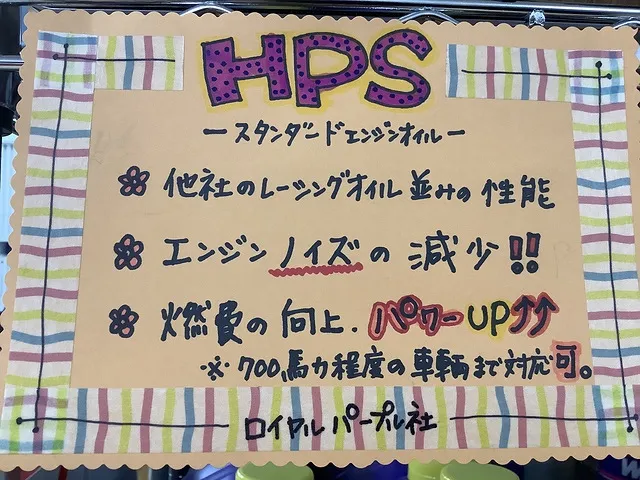 HPS
ースタンダードエンジンオイルー
他社のレーシングオイル並みの性能
エンジンノイズの減少!!
燃費の向上.パワーUP↑↑
※700馬力程度の車輌まで対応可。
ロイヤルパープル社